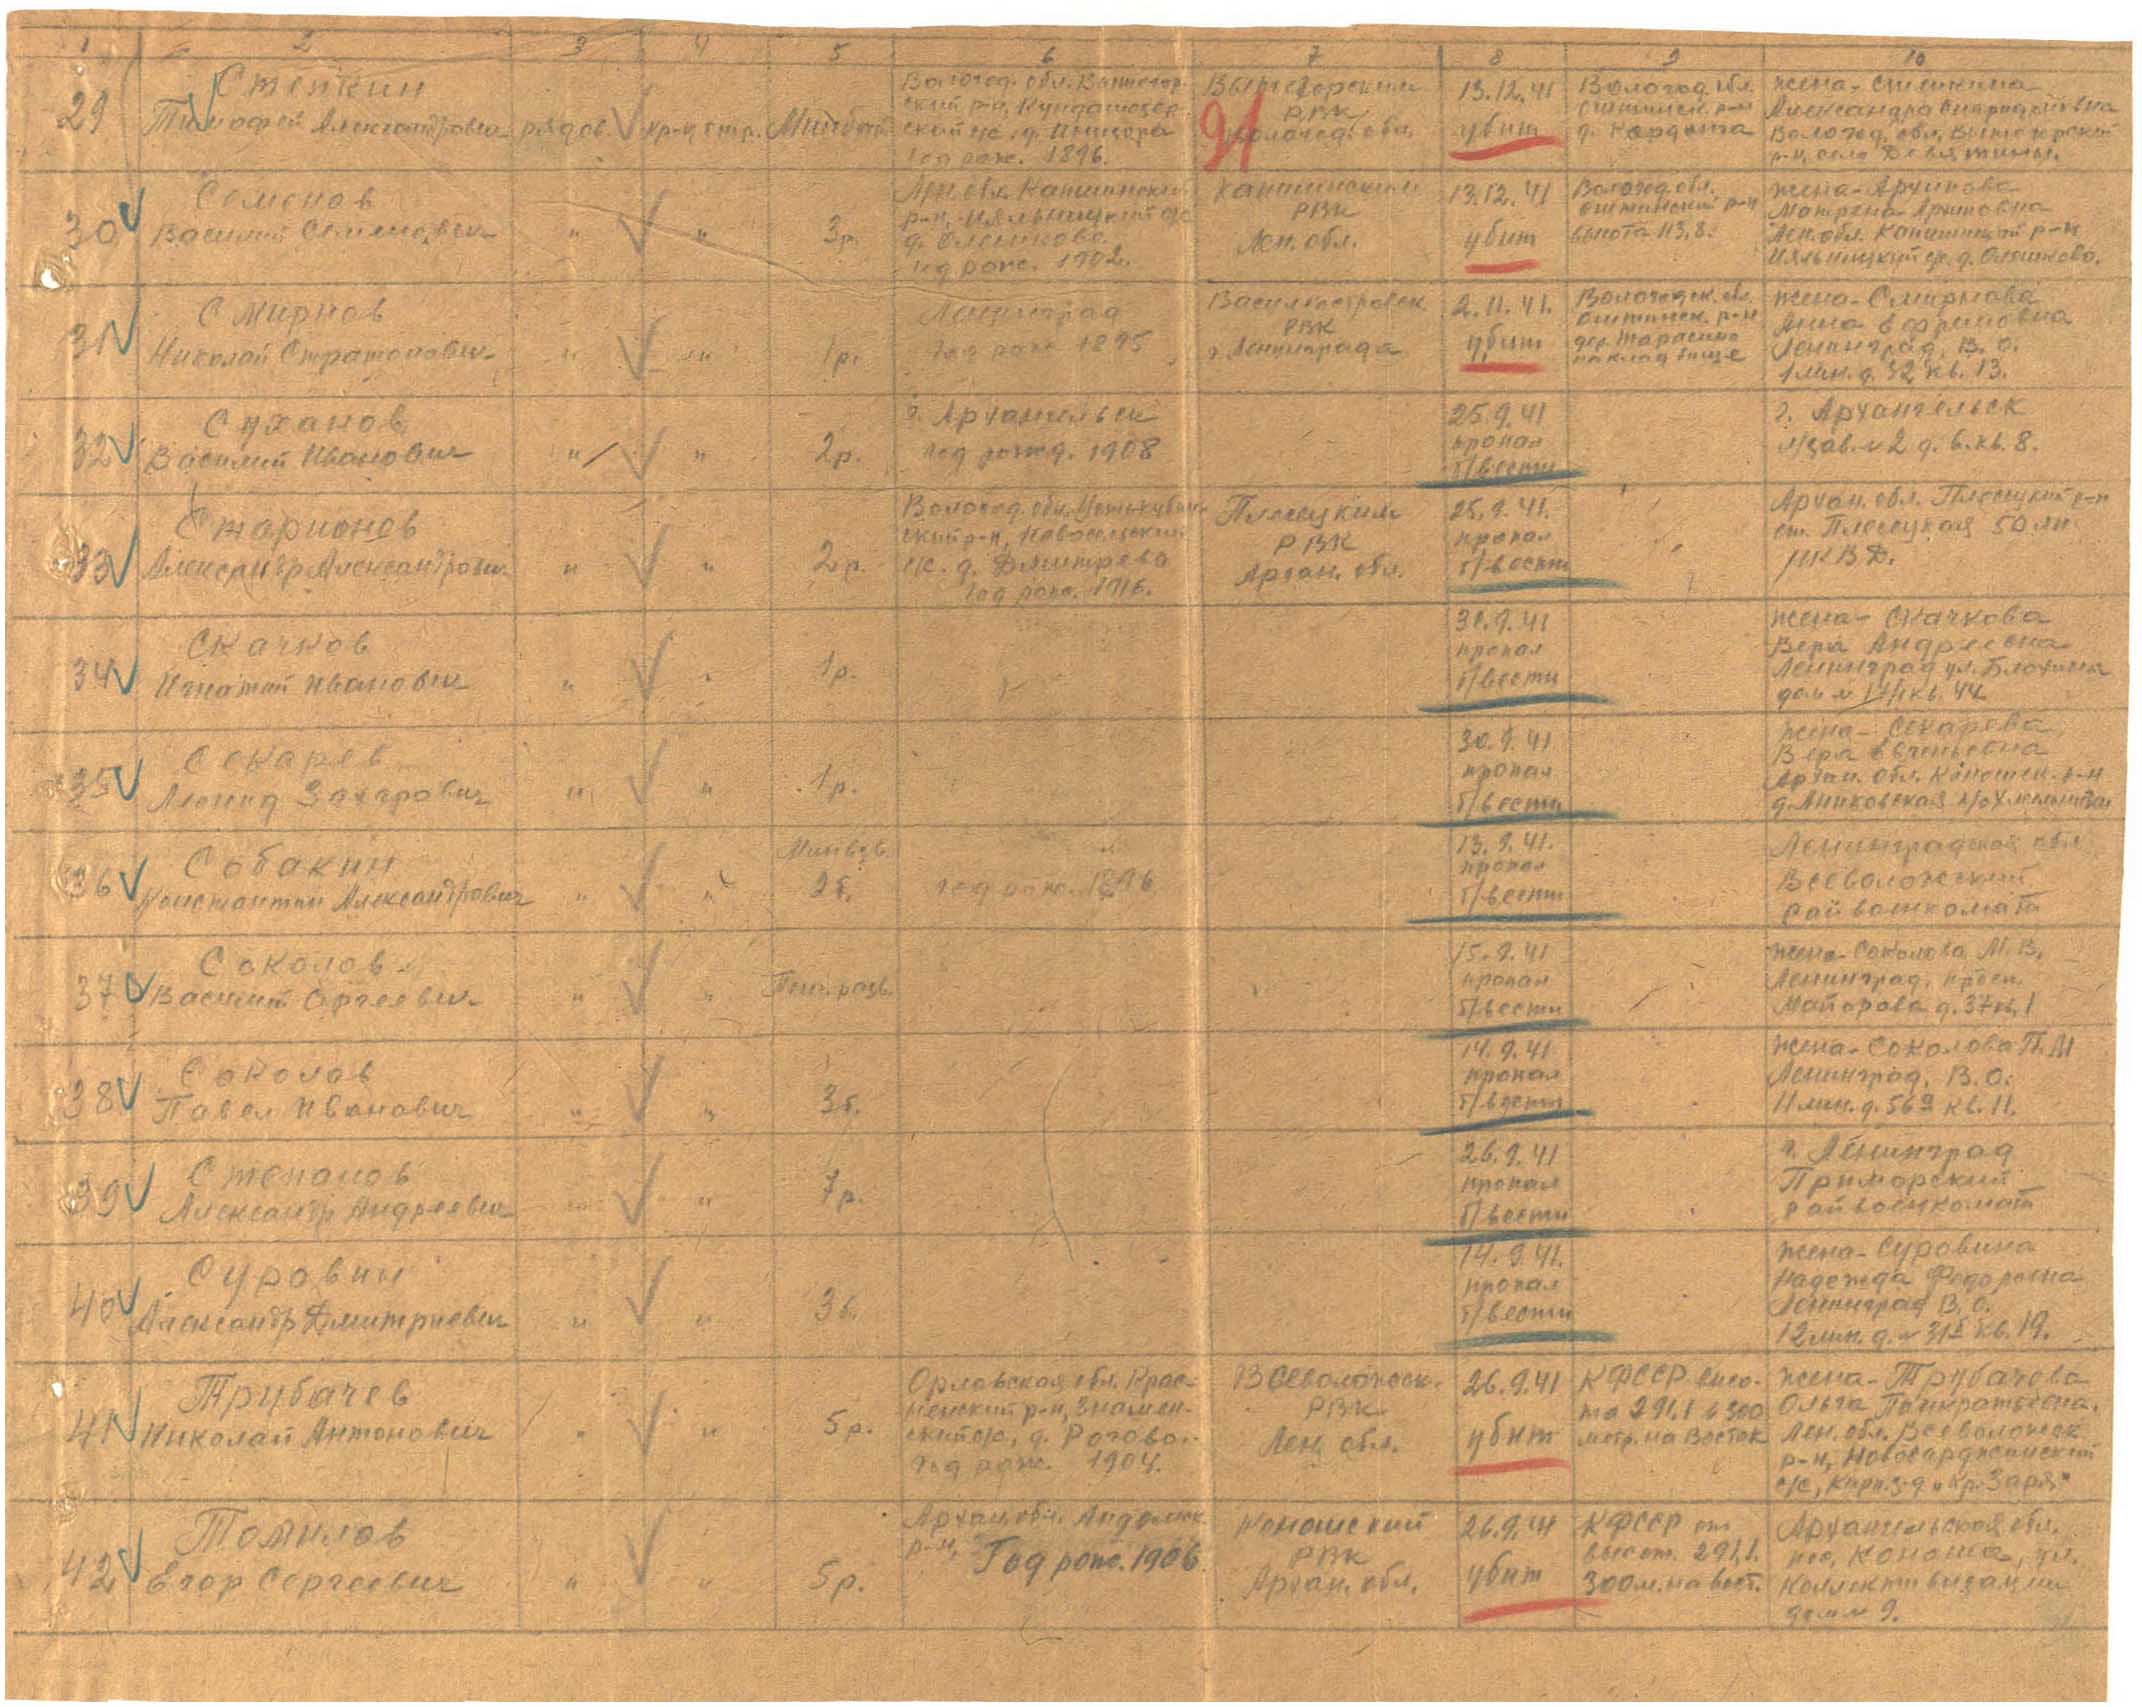 1 2 3 4 5 6 7 8 9 10
29
Степкин
Тимофей Александрович
рядов.
кр-ц стр.
Минбат
Вологод. обл. Вытегор-
ский р-н,
с/с, д.
год рож. 1896.
Вытегорским
РВК
Вологод. обл.
91
13.12.41
убит
Вологод. обл.
оштинск. р-н
д.
жена - Степкина
Александра
Волог. обл. Вытегорский
р-н, село Девятины.
30
Семенов
Василий Семенович
"
"
3р.
Лен. обл. Капшинский
р-н,
д. Олешково
год рож. 1902.
Капшинским
РВК
Лен. обл.
13.12.41
убит
Вологод. обл.
оштинский р-н
высота 113,8.
жена - Архипова
Матрена Архиповна
Лен. обл. Капшинский р-н
д. Олешково.
31
Смирнов
Николай Стратонович
"
"
1р.
Ленинград
год рож. 1895
Василеостровск.
РВК
г. Ленинграда
2.11.41.
убит
Вологодск. обл.
оштинск. р-н
дер. Тарасино
на кладбище
жена - Смирнова
Анна Ефремовна
Ленинград, В.О.
1 лин. д. 32 кв. 13.
32
Суханов
Василий Иванович
"
"
2р.
г. Архангельск
год рожд. 1908
25.9.41
пропал
б/вести
г. Архангельск
л/зав. №2 д. 6. кв. 8.
33
Старионов
Александр Александрович
"
"
2р.
Вологод. обл. Усть-кубин-
ский р-н, Новосельский
с/с. д. Дмитрево
год рож. 1916.
Плесецким
РВК
Архан. обл.
25.9.41.
пропал
б/вести
Архан. обл. Плесецкий р-н
ст. Плесецкая 50 лп.
НКВД.
34
Скачков
Игнатий Иванович
"
"
1р.
30.9.41
пропал
б/вести
жена - Скачкова
Вера Андреевна
Ленинград ул. Блохина
дом № кв. 44
35
Секарев
Леонид Захарович
"
"
1р.
30.9.41
пропал
б/вести
жена - Секарева
Вера Евгеньевна
Архан. обл. Коношск. р-н
д. Аниковская
36
Собакин
Константин Александрович
"
"
Минвзв.
2б.
год рож. 1896
13.9.41.
пропал
б/вести
Ленинградская обл.
Всеволожский
райвоенкомат
37
Соколов
Василий Сергеевич
"
"
Пеш. разв.
15.9.41
пропал
б/вести
жена - Соколова М.В.
Ленинград, просп.
Майорова д. 37 кв. 1
38
Соколов
Павел Иванович
"
"
3б.
14.9.41
пропал
б/вести
жена - Соколова П.М
Ленинград, В.О.
11 лин. д. 56а кв. 11.
39
Степанов
Александр Андреевич
"
"
7р.
26.9.41
пропал
б/вести
г. Ленинград
Приморский
райвоенкомат
40
Суровин
Александр Дмитриевич
"
"
3б.
14.9.41.
пропал
б/вести
жена - Суровина
Надежда Федоровна
Ленинград В.О.
12 лин. д. № 31 кв. 19.
41
Трубачев
Николай Антонович
"
"
5р.
Орловская обл. Крас-
ненский р-н, Знамен-
ский с/с, д. Рогово.
год рож. 1904.
Всеволожск.
РВК
Лен. обл.
26.9.41
убит
КФССР высо-
та 291,1 в 300
метр. на Восток
жена - Трубачева
Ольга Панкратьевна.
Лен. обл. Всеволожск.
р-н, Новосаратовский
с/с, кирп. з-д "Кр. Заря"
42
Томилов
Егор Сергеевич
"
"
5р.
Архан. обл. Андомск.
р-н, Год рож. 1906
Коношский
РВК
Архан. обл.
26.9.41
убит
КФССР от
высот. 291,1.
300 м. на вост.
Архангельская обл.
пос. Коноша, ул.
Коллективизации
дом № 9.